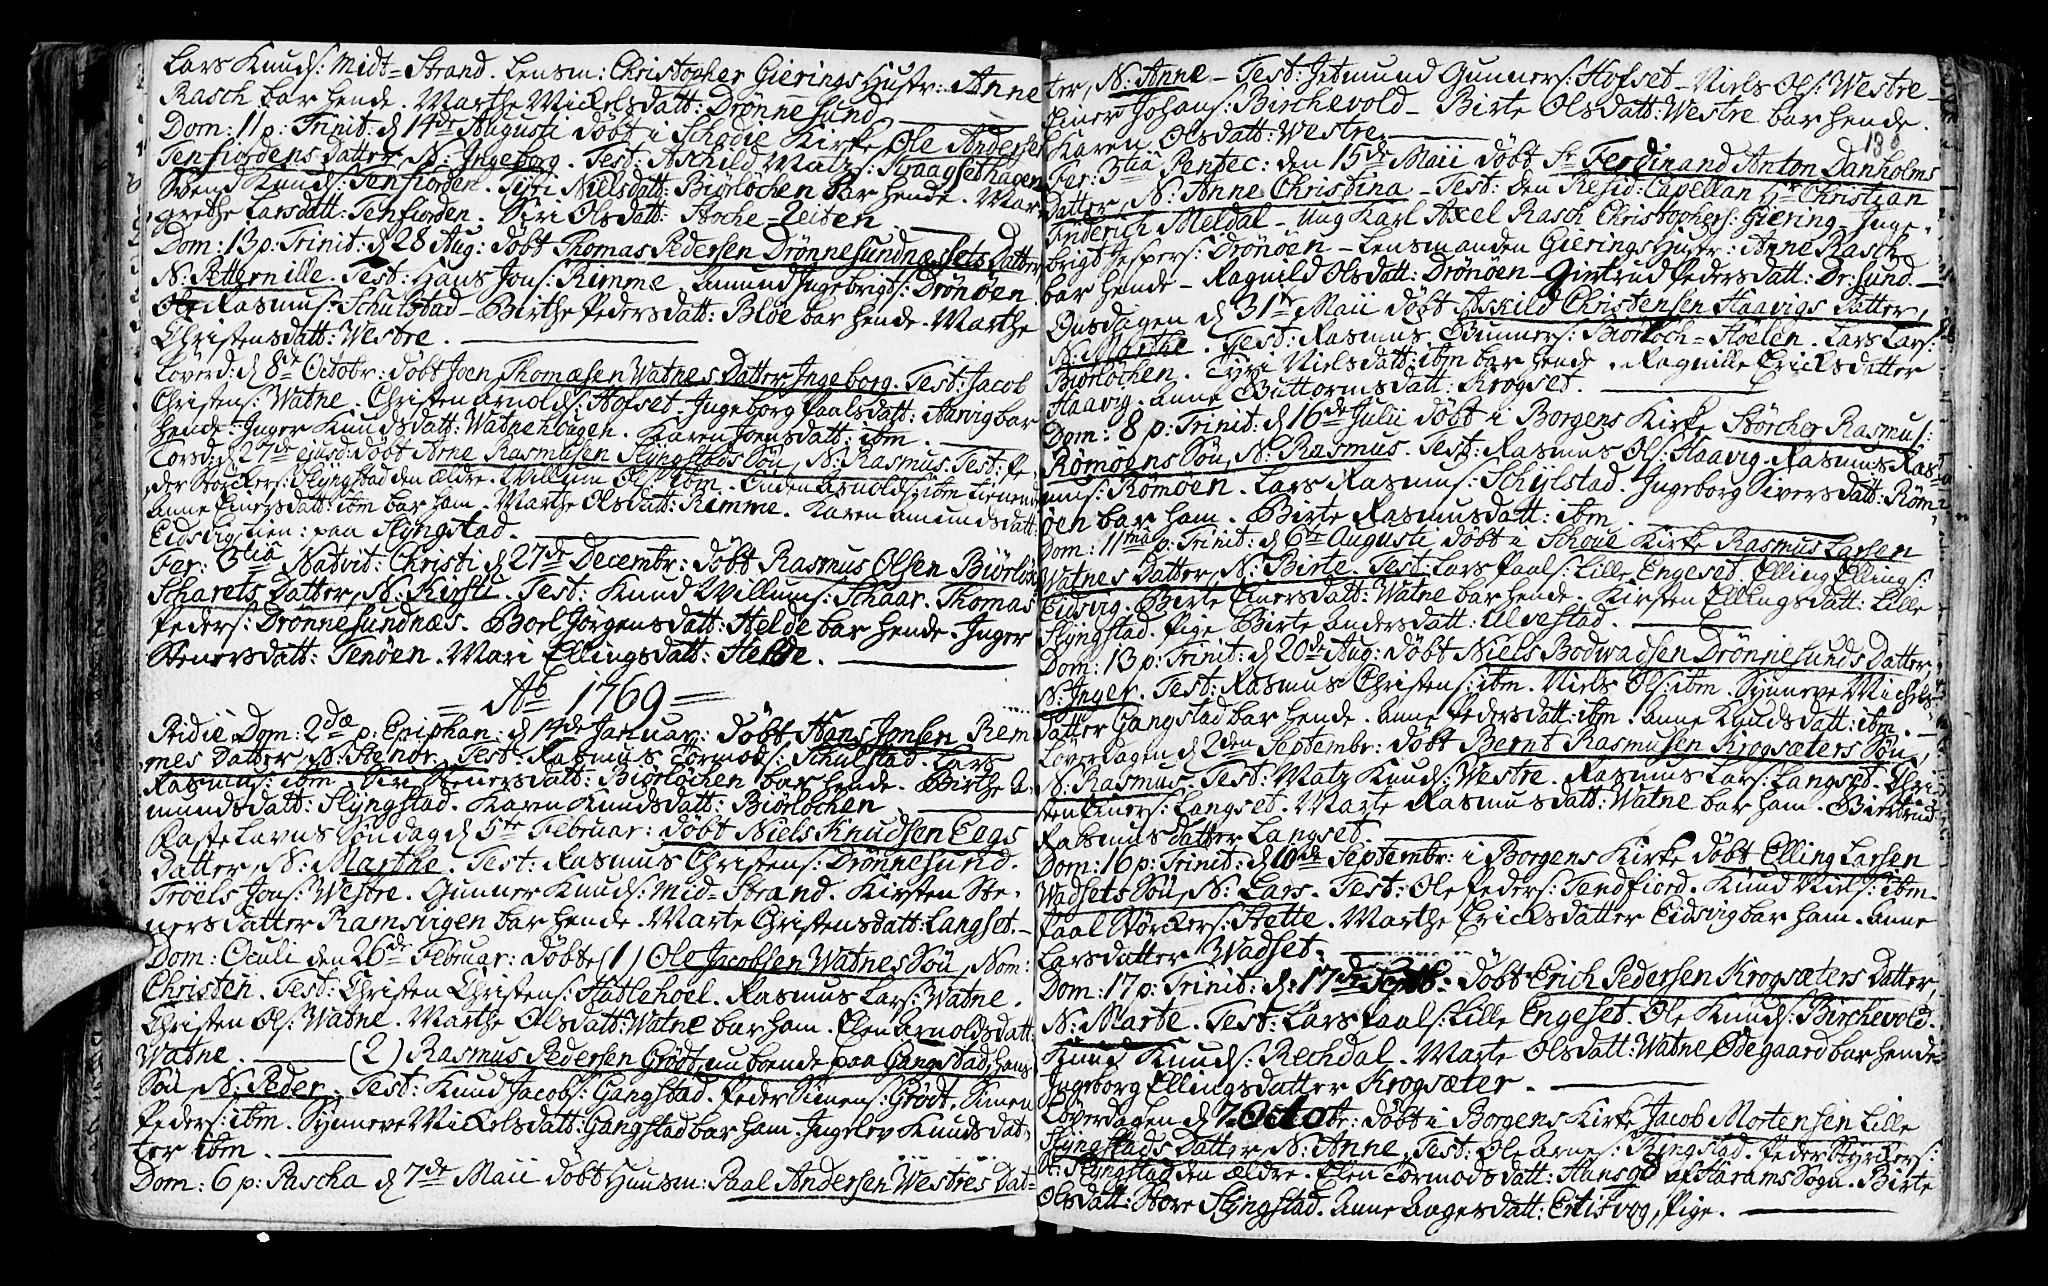 Lars Knuds: Midt=Strand. Lensm: Christopher Gierings Hustr: Anne
Rasch bar hende. Marthe Mickelsdatt: Drønnesund.
Dom: 11 p: Trinit: d 14de Augusti døbt i Schodie Kirke Ole Andersen
Tenfiordens Datter, N: Ingeborg. Test: Aschild Matz: Kraagsethagen
Svend Knuds: Tenfiorden. Siri Nielsdatt: Biørlochen bar hende. Mar=
grethe Larsdatt: Tenfiorden. Siri Olsdatt:
Dom: 13 p: Trinit: d 28 Aug: døbt Thomas Pedersen Drønnesundnæssets Datter
N: Petternille. Test: Hans Jons: Rimme. Amund Ingebrigts: Drønøen.
Rasmus: Schulstad - Birthe Pedersdatt: Bloe bar hende. Marthe
Christensdatt: Westre.
Løverd: d 8de Octobr: døbt Joen Thomæsen Watnes Datter Ingeborg. Test: Jacob
Christens: Watne. Christen Arnolds: Hofset. Ingeborg Paalsdatt: Aarvig bar
hende. Inger Knudsdatt: Watnehougen. Karen Joensdatt: ibm.
Torsd: d 27de ejusd: døbt Arne Rasmusen Slyngstads Søn, N: Rasmus. Test: Pe=
der Størkers: Slyngstad den ældre. Willum Ols: ibm. Enden Arnolds: ibm tienende
Anne Einersdatt: ibm bar ham. Marthe Olsdatt: Rimme. Karen Amundsdatt:
Eidsvig tien: paa Slyngstad.
Fer: 3tia Nativit: Christi d 27de Decembr: døbt Rasmus Olsen Biørløch
Scharets Datter, N: Kirsti. Test: Knud Willums: Schaar. Thomas
Peders: Drønnesundnæs. Boel Jørgensdatt: Helde bar hende. Inger
Stenersdatt: Tenøen. Mari Ellingsdatt: Helde.
= Ao 1769 =
Pridie Dom: 2dæ p: Epiphan: d 14de Januar: døbt Hans Jonsen Rem=
mes Datter, N: Stenor. Test: Rasmus Tormods: Schulstad. Lars
Rasmus: ibm. Siri Stenersdatt: Biørlochen bar hende. Birthe A=
mundsdatt: Slyngstad. Karen Knudsdatt: Biørlochen.
Fastelavns Søndag d 5te Februar: døbt Niels Knudsen Eegs
Datter, N: Marthe. Test: Rasmus Christens: Drønnesund.
Troels Jons: Westre. Gunner Knuds: Mid=Strand. Kirsten Ste=
nersdatter Ramsvigen bar hende. Marte Christensdatt: Langset.
Dom: Oculi den 26de Februar: døbte (1) Ole Jacobsen Watnes Søn, Nom:
Christen. Test: Christen Christens: Hatlehoel. Rasmus Lars: Watne.
Christen Ols: Watne. Marthe Olsdatt: Watne bar ham. Elen Arnoldsdatt:
Watne. (2) Rasmus Pedersen Grødt, nu boende paa Gangstad, hans
Søn, N: Peder. Test: Knud Jacobs: Gangstad. Peder Simens: Grødt. Simen
Peders: ibm. Synneve Mickelsdatt: Gangstad bar ham. Ingelev Knudsdat=
ter ibm.
Dom: 6 p: Pascha d 7de Maii døbt Huusm: Paal Andersen Westres Dat=
ter, N: Anne - Test: Jetmund Gunners: Hofset - Niels Ols: Westre -
Einer Johans: Birchevold - Birte Olsdatt: Westre bar hende.
Karen Olsdatt: Westre.
Fer: 3tia Pentec: den 15de Maii døbt Sr Ferdinand Anton Danholms
Datter, N: Anne Christina - Test: den Resid: Capellan Hr Christian
Friderich Meldal - Ung Karl Axel Rasch Christophers: Giering - Inge=
brigt Jespers: Drønøen - Lensmanden Gierings Hustr: Anne Rasch
bar hende - Ragnild Olsdatt: Drønøen - Giertrud Pedersdatt: Dr:sund. -
Onsdagen d 31te Maii døbt Askild Christensen Haavigs Datter,
N: Marthe. Test: Rasmus Gunners: Biørloch=Hoelen. Lars Lars:
Biørlochen. Tyri Nielsdatt: ibm bar hende. Ragnille Ericksdatter
Haavig. Anne Guttormsdatt: Krogset.
Dom: 8 p: Trinit: d 16de Julii døbt i Borgens Kirke Størcher Rasmus:
Rømøens Søn, N: Rasmus. Test: Rasmus Ols: Haavig. Rasmus Ras=
mus: Rømøen. Lars Rasmus: Schylstad. Ingeborg Siversdatt: Røm=
øen bar ham. Birte Rasmusdatt: ibm.
Dom: 11ma p: Trinit: d 6te Augusti døbt i Schoue Kirke Rasmus Larsen
Watnes Datter, N: Birte. Test: Lars Paals: Lille Engeset. Elling Ellings:
Eidsvig. Birte Einersdatt: Watne bar hende. Kirsten Ellingsdatt: Lille
Slyngstad. Pige Birte Andersdatt: Ulvestad.
Dom: 13 p: Trinit: d 20de Aug: døbt Niels Bodwadsen Drønnesunds Datter,
N: Inger. Test: Rasmus Christens: ibm. Niels Ols: ibm. Synneve Michels=
datter Gangstad bar hende. Anne Pedersdatt: ibm. Anne Knudsdatt: ibm.
Løverdagen d 2den Septembr: døbt Bernt Rasmusen Krogsæters Søn,
N: Rasmus. Test: Matz Knuds: Westre. Rasmus Lars: Langset. Chri=
sten Einers: Langset. Marte Rasmusdatt: Watne bar ham. Giertrud
Rasmusdatter Langset.
Dom: 16 p: Trinit: d 10de Septembr: i Borgens Kirke døbt Elling Larsen
Wadsets Søn, N: Lars. Test: Ole Peders: Tendfiord. Knud Niels: ibm.
Paal Størckers: Stette. Marthe Ericksdatter Eidsvig bar ham. Anne
Larsdatter Wadset.
Dom: 17 p: Trinit: d: 17de Septb: døbt Erich Pedersen Krogsæters Datter,
N: Marte. Test: Lars Paals: Lille Engeset. Ole Knuds: Birchevold.
Knud Knuds: Rechdal. Marte Olsdatt: Watne Ødegaard bar hende.
Ingeborg Ellingsdatter Krogsæter.
Løverdagen d 7 Octobr: døbt i Borgens Kirke Jacob Mortensen Lille
Slyngstads Datter, N: Anne. Test: Ole Arnes: Ringstad. Peder Styrckers:
Slyngstad den ældre. Elen Tormodsdatt: Hansgd af Harams Sogn. Birte
Olsdatt: Store Slyngstad. Anne Aagesdatt: Pige.